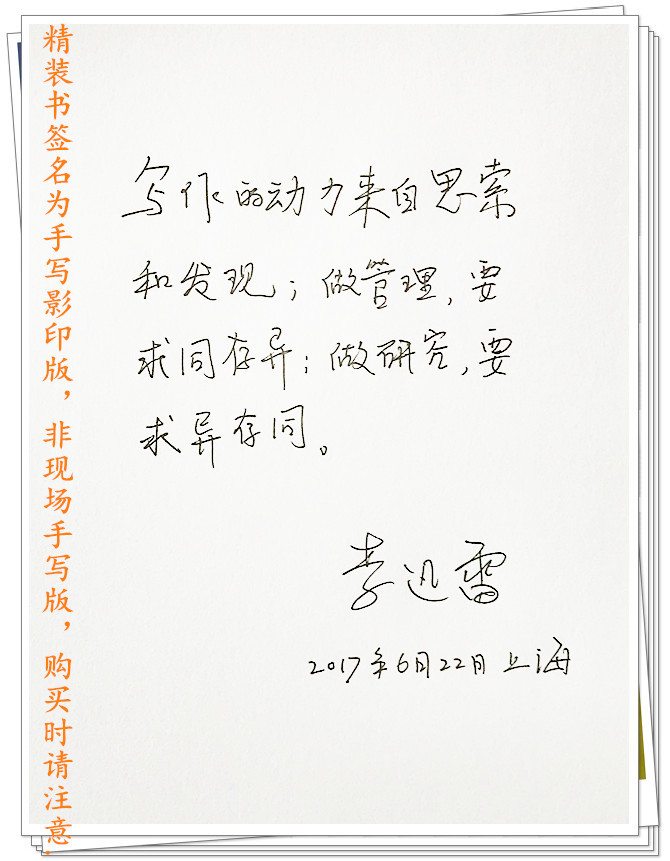 精装书签名为手写影印版，非现场手写版，购买时请注意
写作的动力来自思索
和发现；做管理，要
求同存异；做研究，要
求异存同。
李迅雷
2017年6月22日 上海